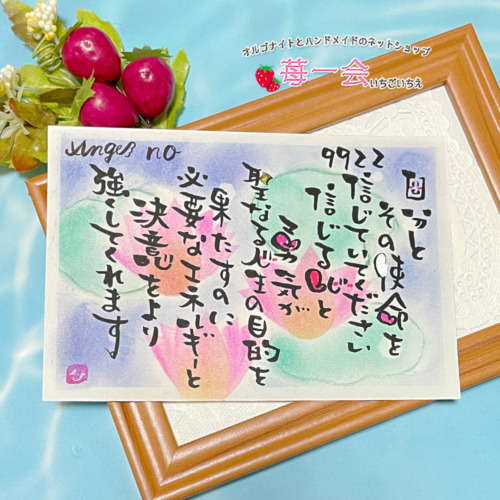 オルゴナイトとハンドメイドのネットショップ
苺一会
いちごいちえ
Angel no
9922
自分と
その使命を
信じていてください
信じる心と
勇気が
聖なる人生の目的を
果たすのに
必要なエネルギーと
決意をより
強くしてくれます